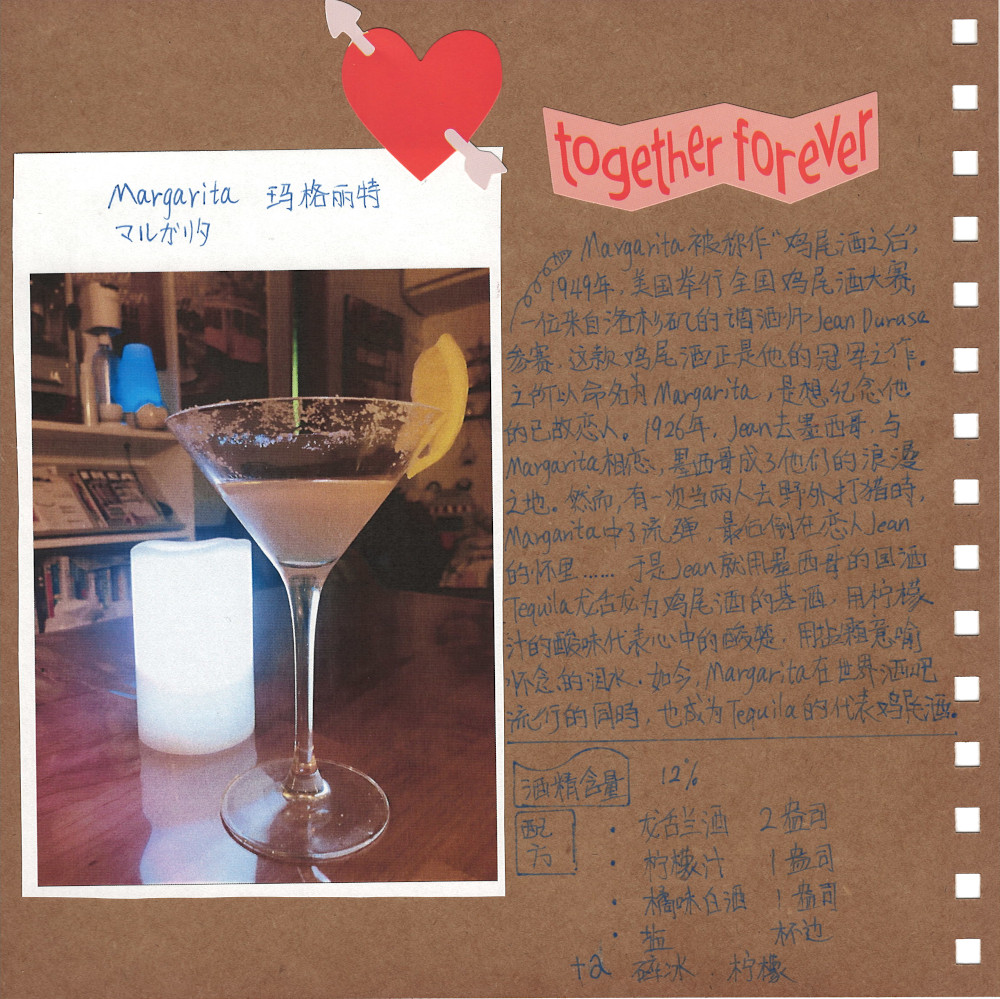 Margarita 玛格丽特
マルガリタ
together forever
Margarita 被称作“鸡尾酒之后”,
1949年, 美国举行全国鸡尾酒大赛,
一位来自洛杉矶的调酒师Jean Durasa
参赛, 这款鸡尾酒正是他的冠军之作.
之所以命名为Margarita, 是想纪念他
的已故恋人。1926年, Jean去墨西哥, 与
Margarita相恋, 墨西哥成了他们的浪漫
之地. 然而, 有一次当两人去野外打猎时,
Margarita中了流弹, 最后倒在恋人Jean
的怀里…… 于是Jean就用墨西哥的国酒
Tequila 为鸡尾酒的基酒, 用柠檬
汁的酸味代表心中的酸楚, 用盐霜意喻
怀念的泪水. 如今, Margarita在世界酒吧
流行的同时, 也成为Tequila的代表鸡尾酒.
酒精含量 12%
配方
· 龙舌兰酒 2盎司
· 柠檬汁 1盎司
· 橘味白酒 1盎司
· 盐 杯边
碎冰 柠檬